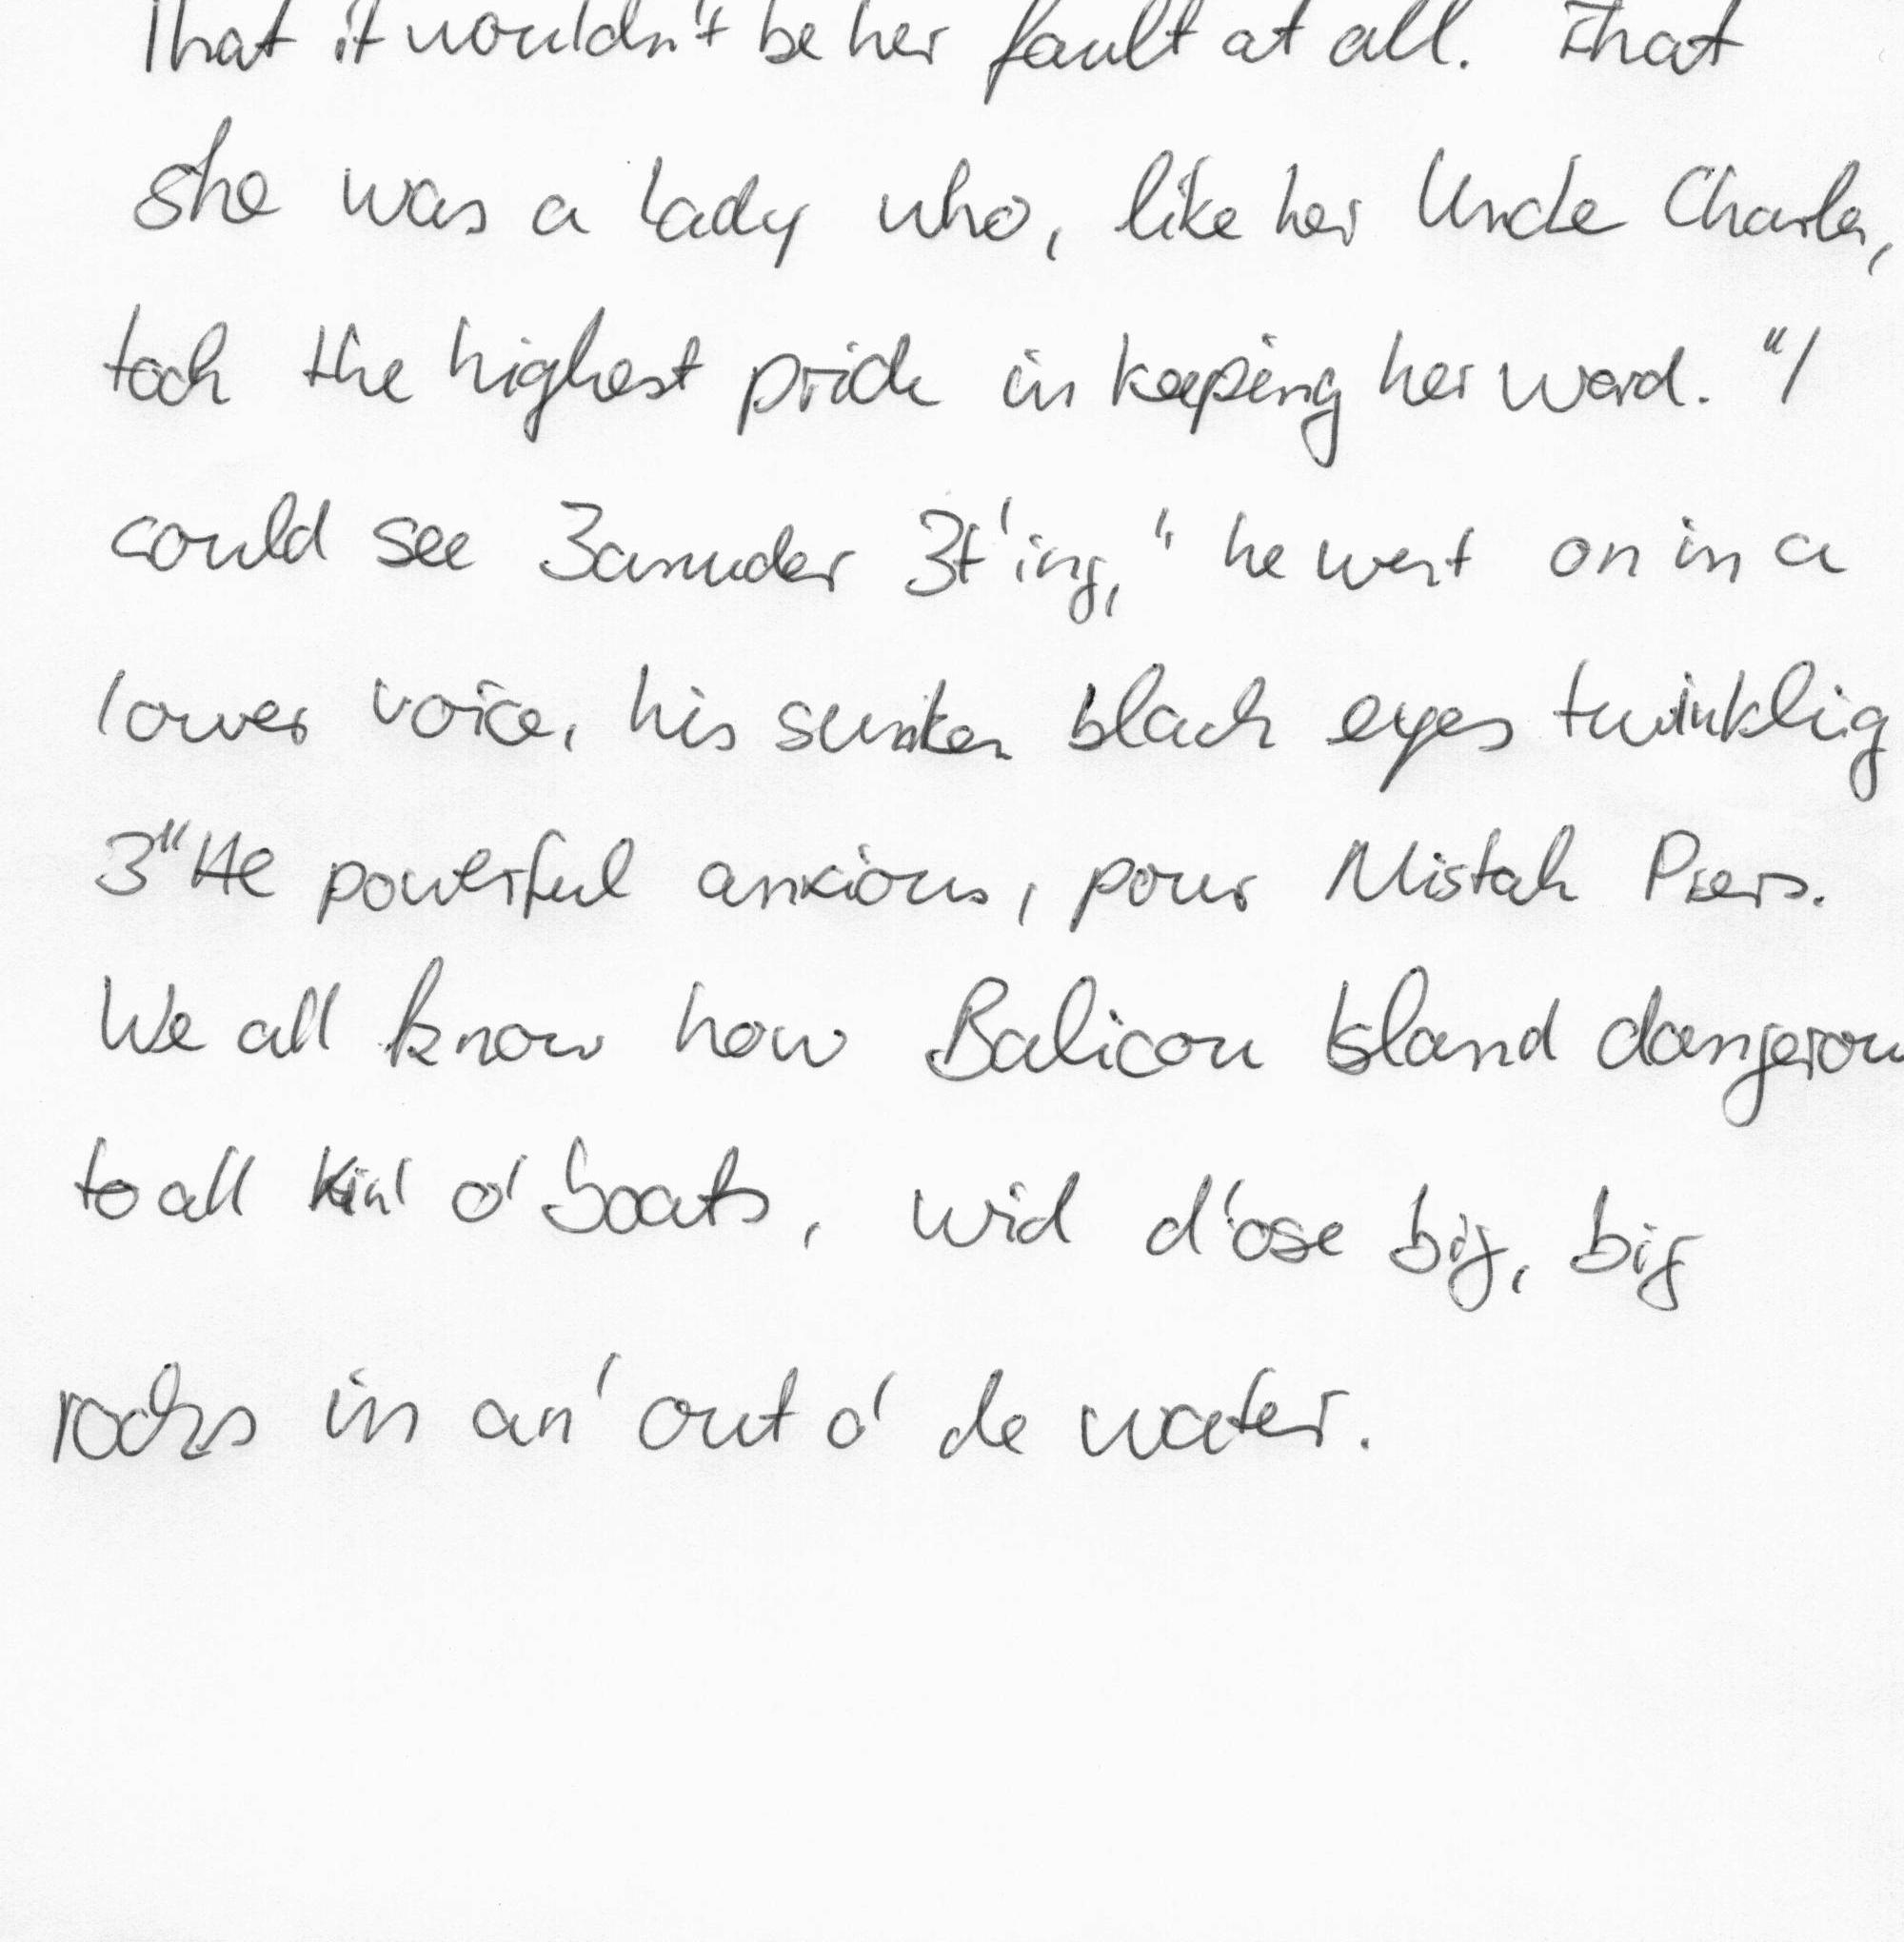 That it wouldn't be her fault at all. That
she was a lady who, like her Uncle Charles,
took the highest pride in keeping her word. "I
could see 3anuder 3t'ing," he went on in a
lower voice, his sunken black eyes twinklig
3"He powerful anxious, pour Mistah Piers.
We all know how Balicou Island dangerou
to all kin' o' boats, wid d'ose big, big
rocks in an' out o' de water.